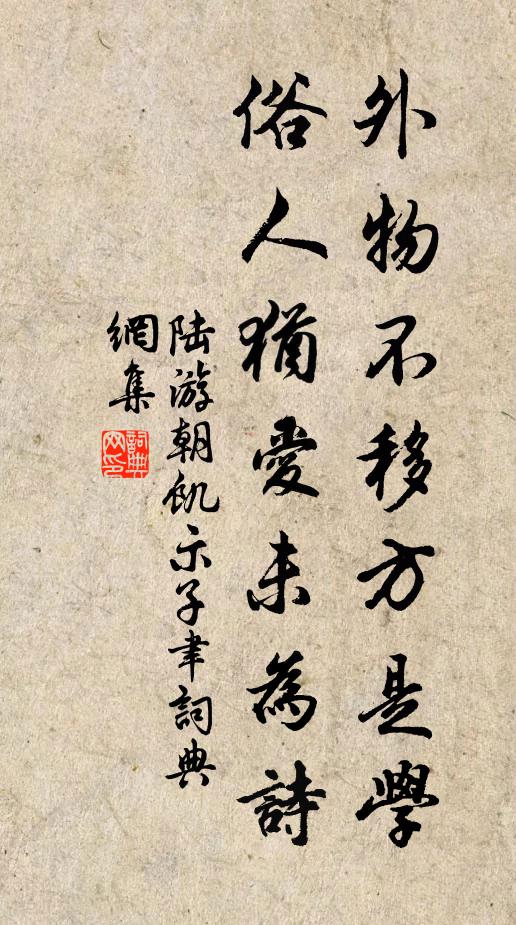 外物不移方是學
俗人猶愛未為詩
陆游朝飢示子聿詞典
網集
詞典网印